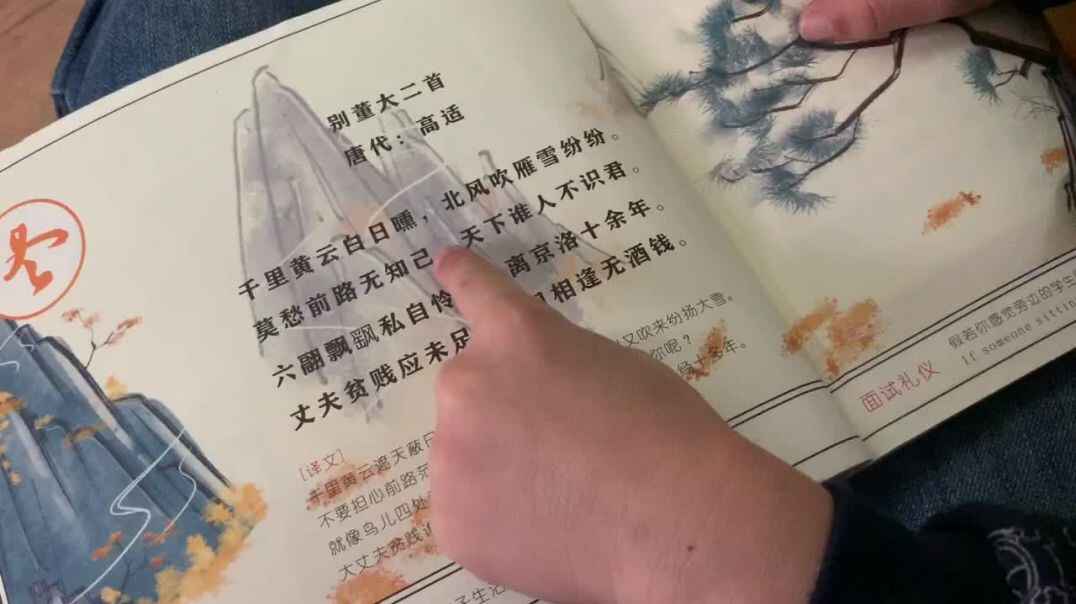 别董大二首
唐代：高适
千里黄云白日曛，北风吹雁雪纷纷。
莫愁前路无知己 天下谁人不识君。
六翮飘飖私自怜 离京洛十余年。
丈夫贫贱应未足 相逢无酒钱。
[译文]
千里黄云遮天蔽日 又吹来纷扬大雪。
不要担心前路茫 你呢？
就像鸟儿四处 十多年。
大丈夫贫贱
子生活
面试礼仪
假若你感觉旁边的学生
If someone sittin